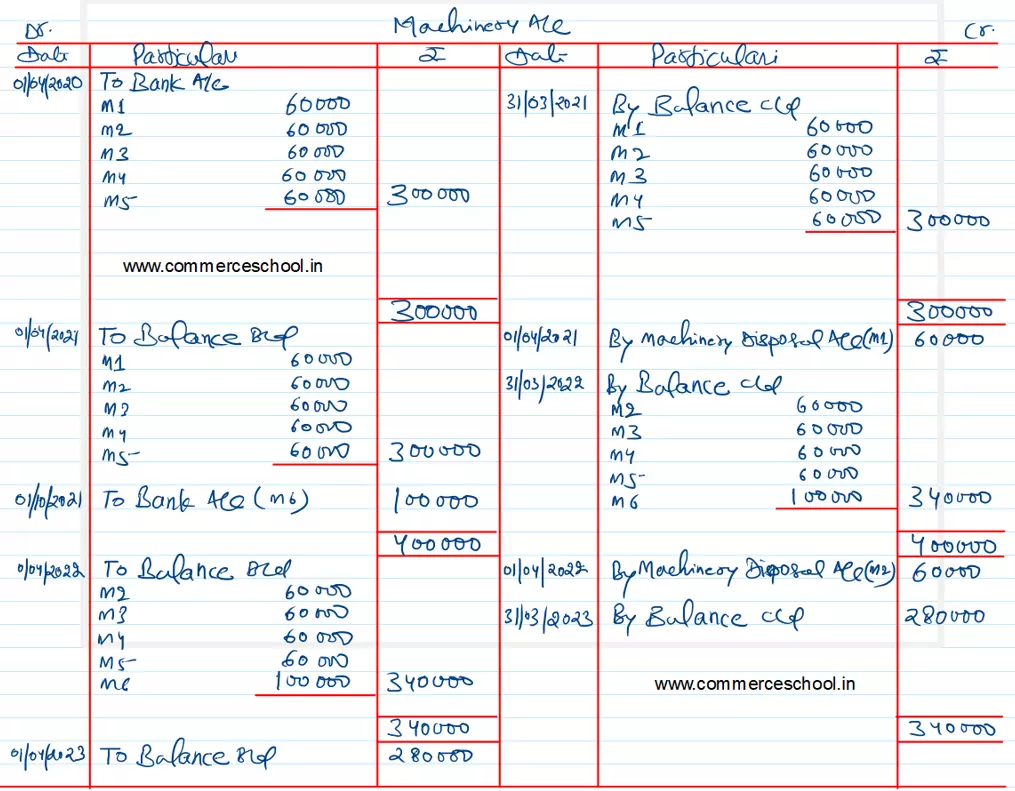 Machinery A/c
Dr. Cr.
Date Particulars ₹ Date Particulars ₹
01/04/2020 To Bank A/c
M1 60000 31/03/2021 By Balance c/d
M2 60000 M1 60000
M3 60000 M2 60000
M4 60000 M3 60000
M5 60000 300000 M4 60000
M5 60000 300000
www.commerceschool.in
300000 300000
01/04/2021 To Balance B/d 01/04/2021 By Machinery Disposal A/c (M1) 60000
M1 60000
M2 60000 31/03/2022 By Balance c/d
M3 60000 M2 60000
M4 60000 M3 60000
M5 60000 300000 M4 60000
M5 60000
01/10/2021 To Bank A/c (M6) 100000 M6 100000 340000
400000 400000
01/04/2022 To Balance B/d 01/04/2022 By Machinery Disposal A/c (M2) 60000
M2 60000
M3 60000 31/03/2023 By Balance c/d 280000
M4 60000
M5 60000
M6 100000 340000
www.commerceschool.in
340000 340000
01/04/2023 To Balance B/d 280000